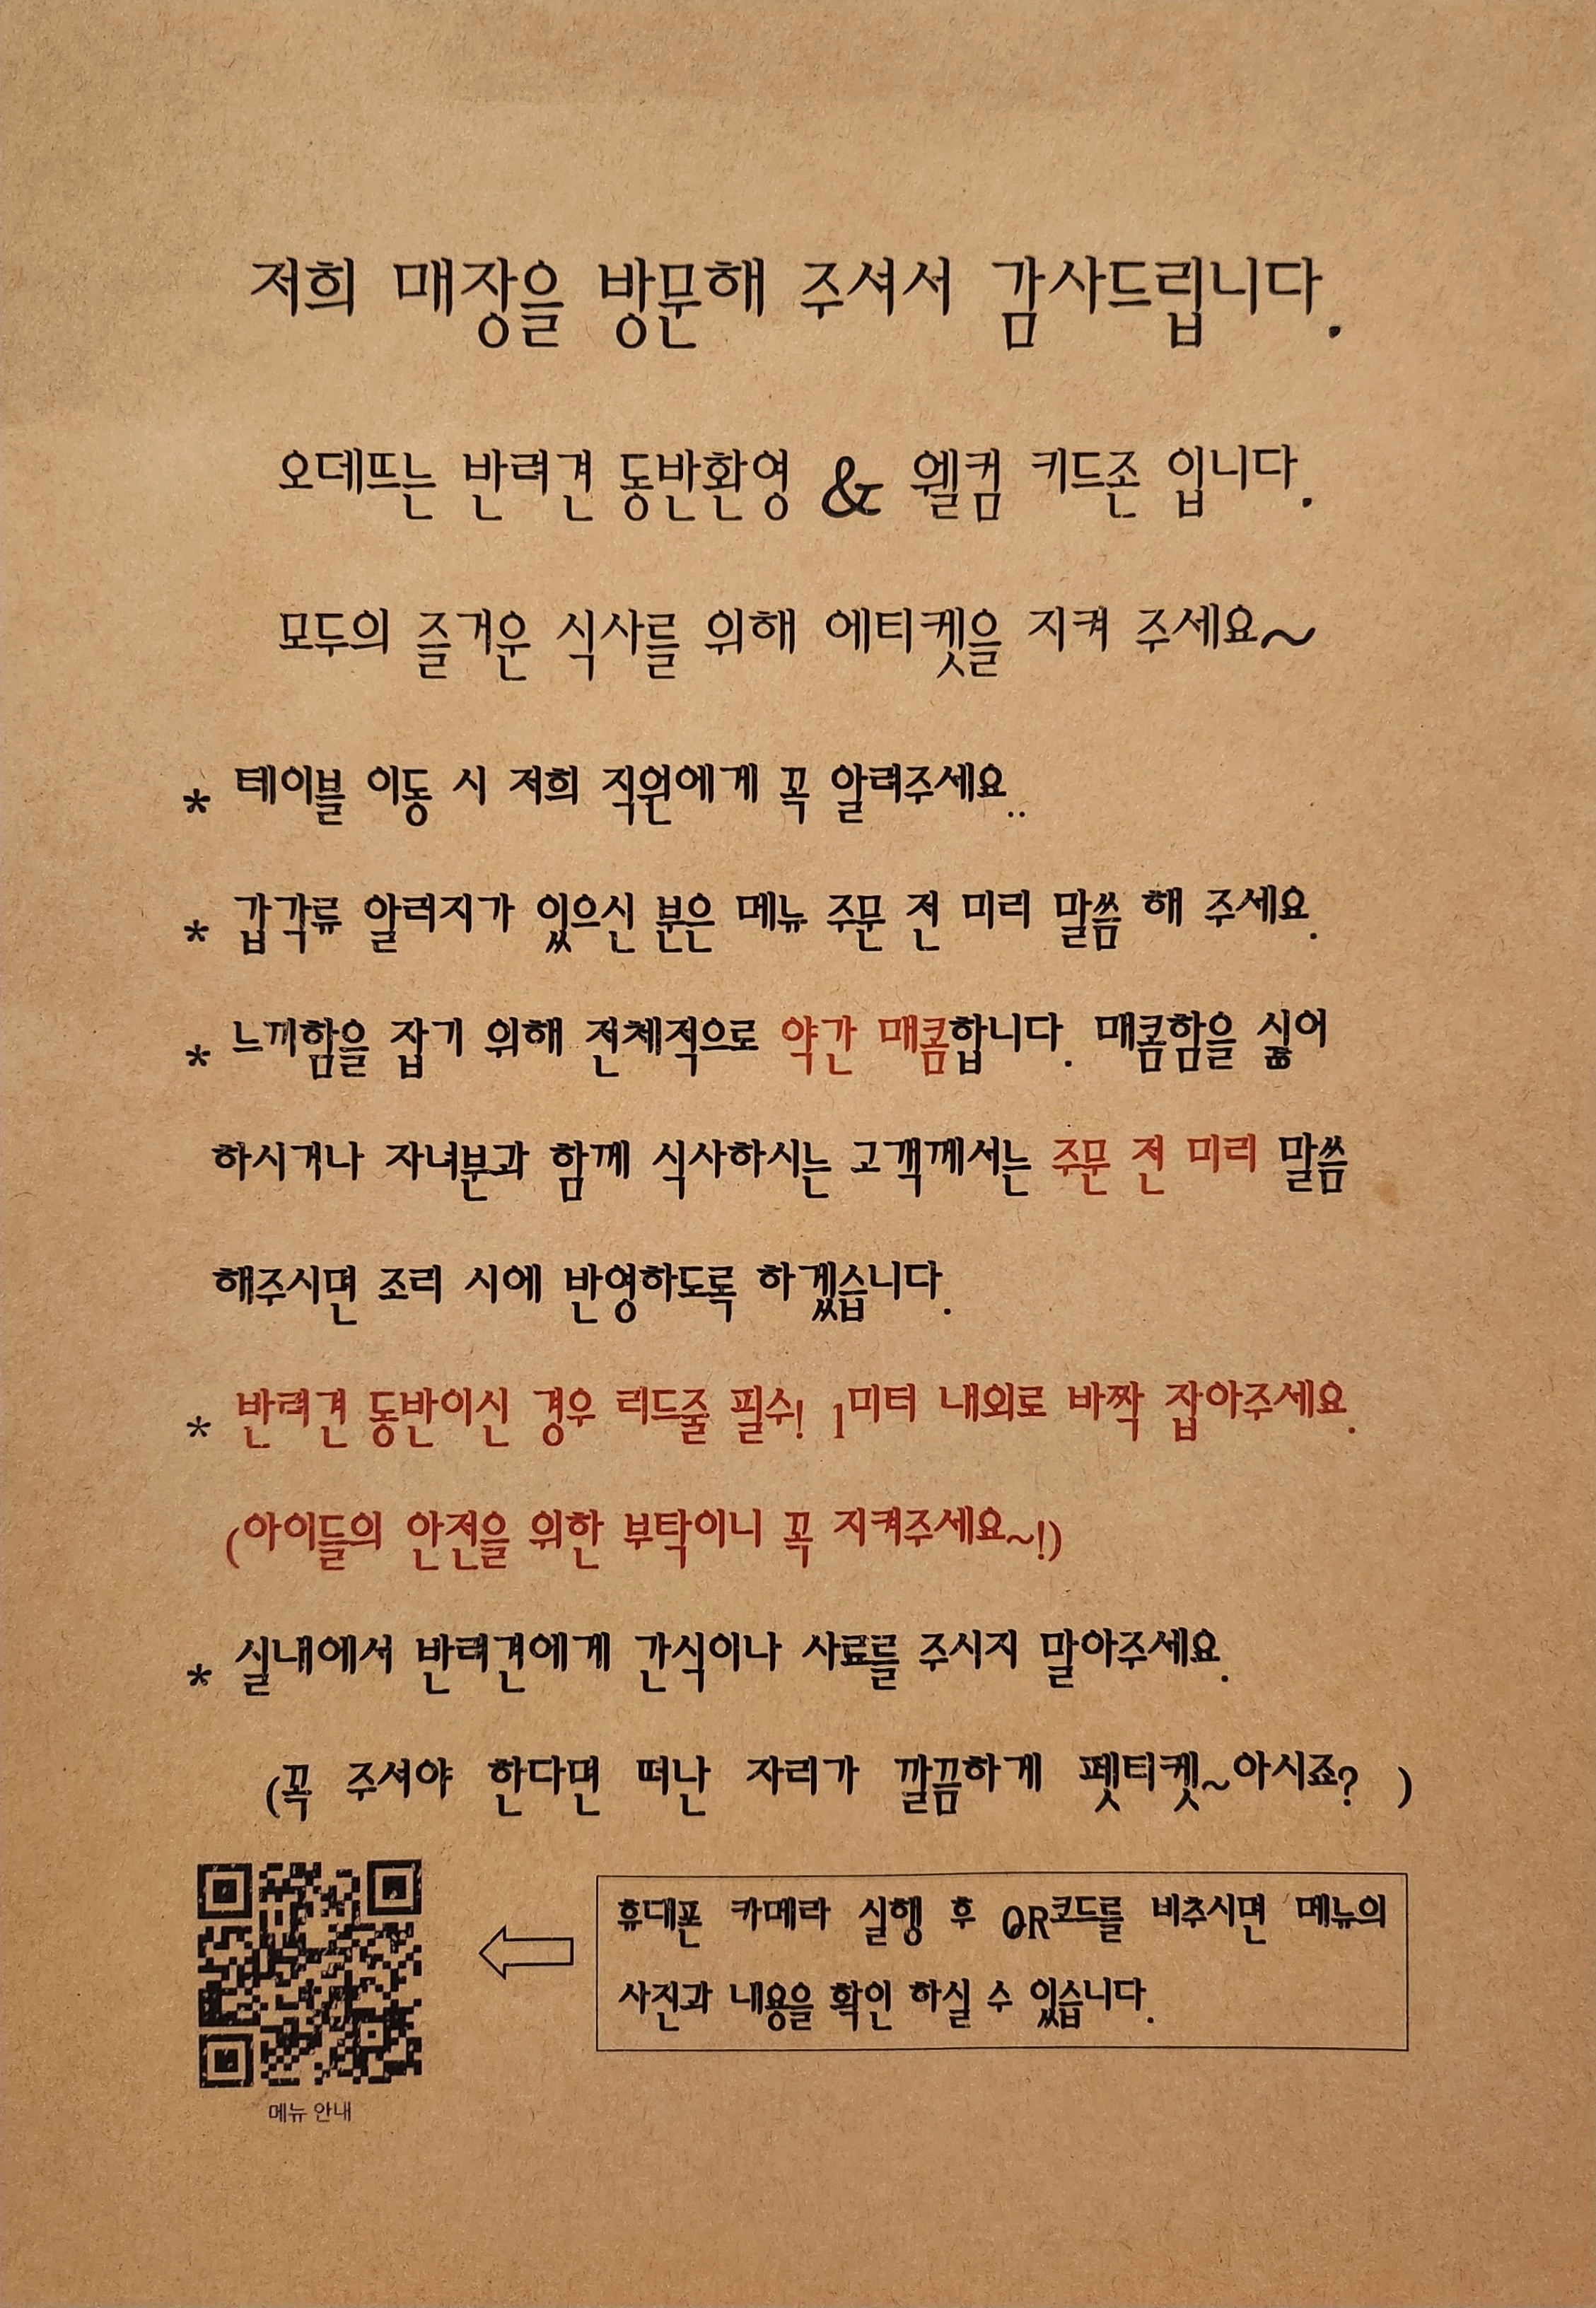 저희 매장을 방문해 주셔서 감사드립니다.
오데뜨는 반려견 동반환영 & 웰컴 키드존 입니다.
모두의 즐거운 식사를 위해 에티켓을 지켜 주세요~
* 테이블 이동 시 저희 직원에게 꼭 알려주세요..
* 갑각류 알러지가 있으신 분은 메뉴 주문 전 미리 말씀 해 주세요.
* 느끼함을 잡기 위해 전체적으로 약간 매콤합니다. 매콤함을 싫어
하시거나 자녀분과 함께 식사하시는 고객께서는 주문 전 미리 말씀
해주시면 조리 시에 반영하도록 하겠습니다.
* 반려견 동반이신 경우 리드줄 필수! 1미터 내외로 바짝 잡아주세요.
(아이들의 안전을 위한 부탁이니 꼭 지켜주세요~!)
* 실내에서 반려견에게 간식이나 사료를 주시지 말아주세요.
(꼭 주셔야 한다면 떠난 자리가 깔끔하게 펫티켓~아시죠? )
휴대폰 카메라 실행 후 QR코드를 비추시면 메뉴의
사진과 내용을 확인 하실 수 있습니다.
메뉴 안내